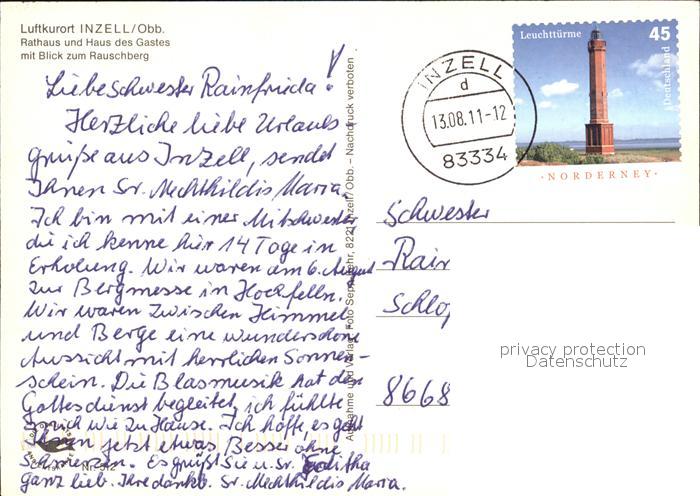 Luftkurort INZELL/Obb.
Rathaus und Haus des Gastes
mit Blick zum Rauschberg
Liebe Schwester Rainfrieda!
Herzliche liebe Urlaubs
grüße aus Inzell, sendet
Ihnen Sr. Mechthildis Maria.
Ich bin mit einer Mitschwester
die ich kenne hier 14 Tage in
Erholung. Wir waren am 6. August
zur Bergmesse in Hochfelln.
Wir waren zwischen Himmel
und Berge eine wunderschöne
Aussicht mit herrlichen Sonnen-
schein. Die Blasmusik hat den
Gottesdienst begleitet, ich fühlte
mich wie zu Hause. Ich hoffe, es geht
Ihnen jetzt etwas Besser ohne
Schmerzen. Es grüßt Sie u. Sr.
ganz lieb. Ihre dankb. Sr. Mechthildis Maria.
Nr. 512
Aufnahme und Verlag: Foto 8221 Inzell/Obb. – Nachdruck verboten
INZELL
d
13.08.11-12
83334
Leuchttürme
45
Deutschland
·NORDERNEY·
Schwester
Rain
Schloß
8668
privacy protection
Datenschutz